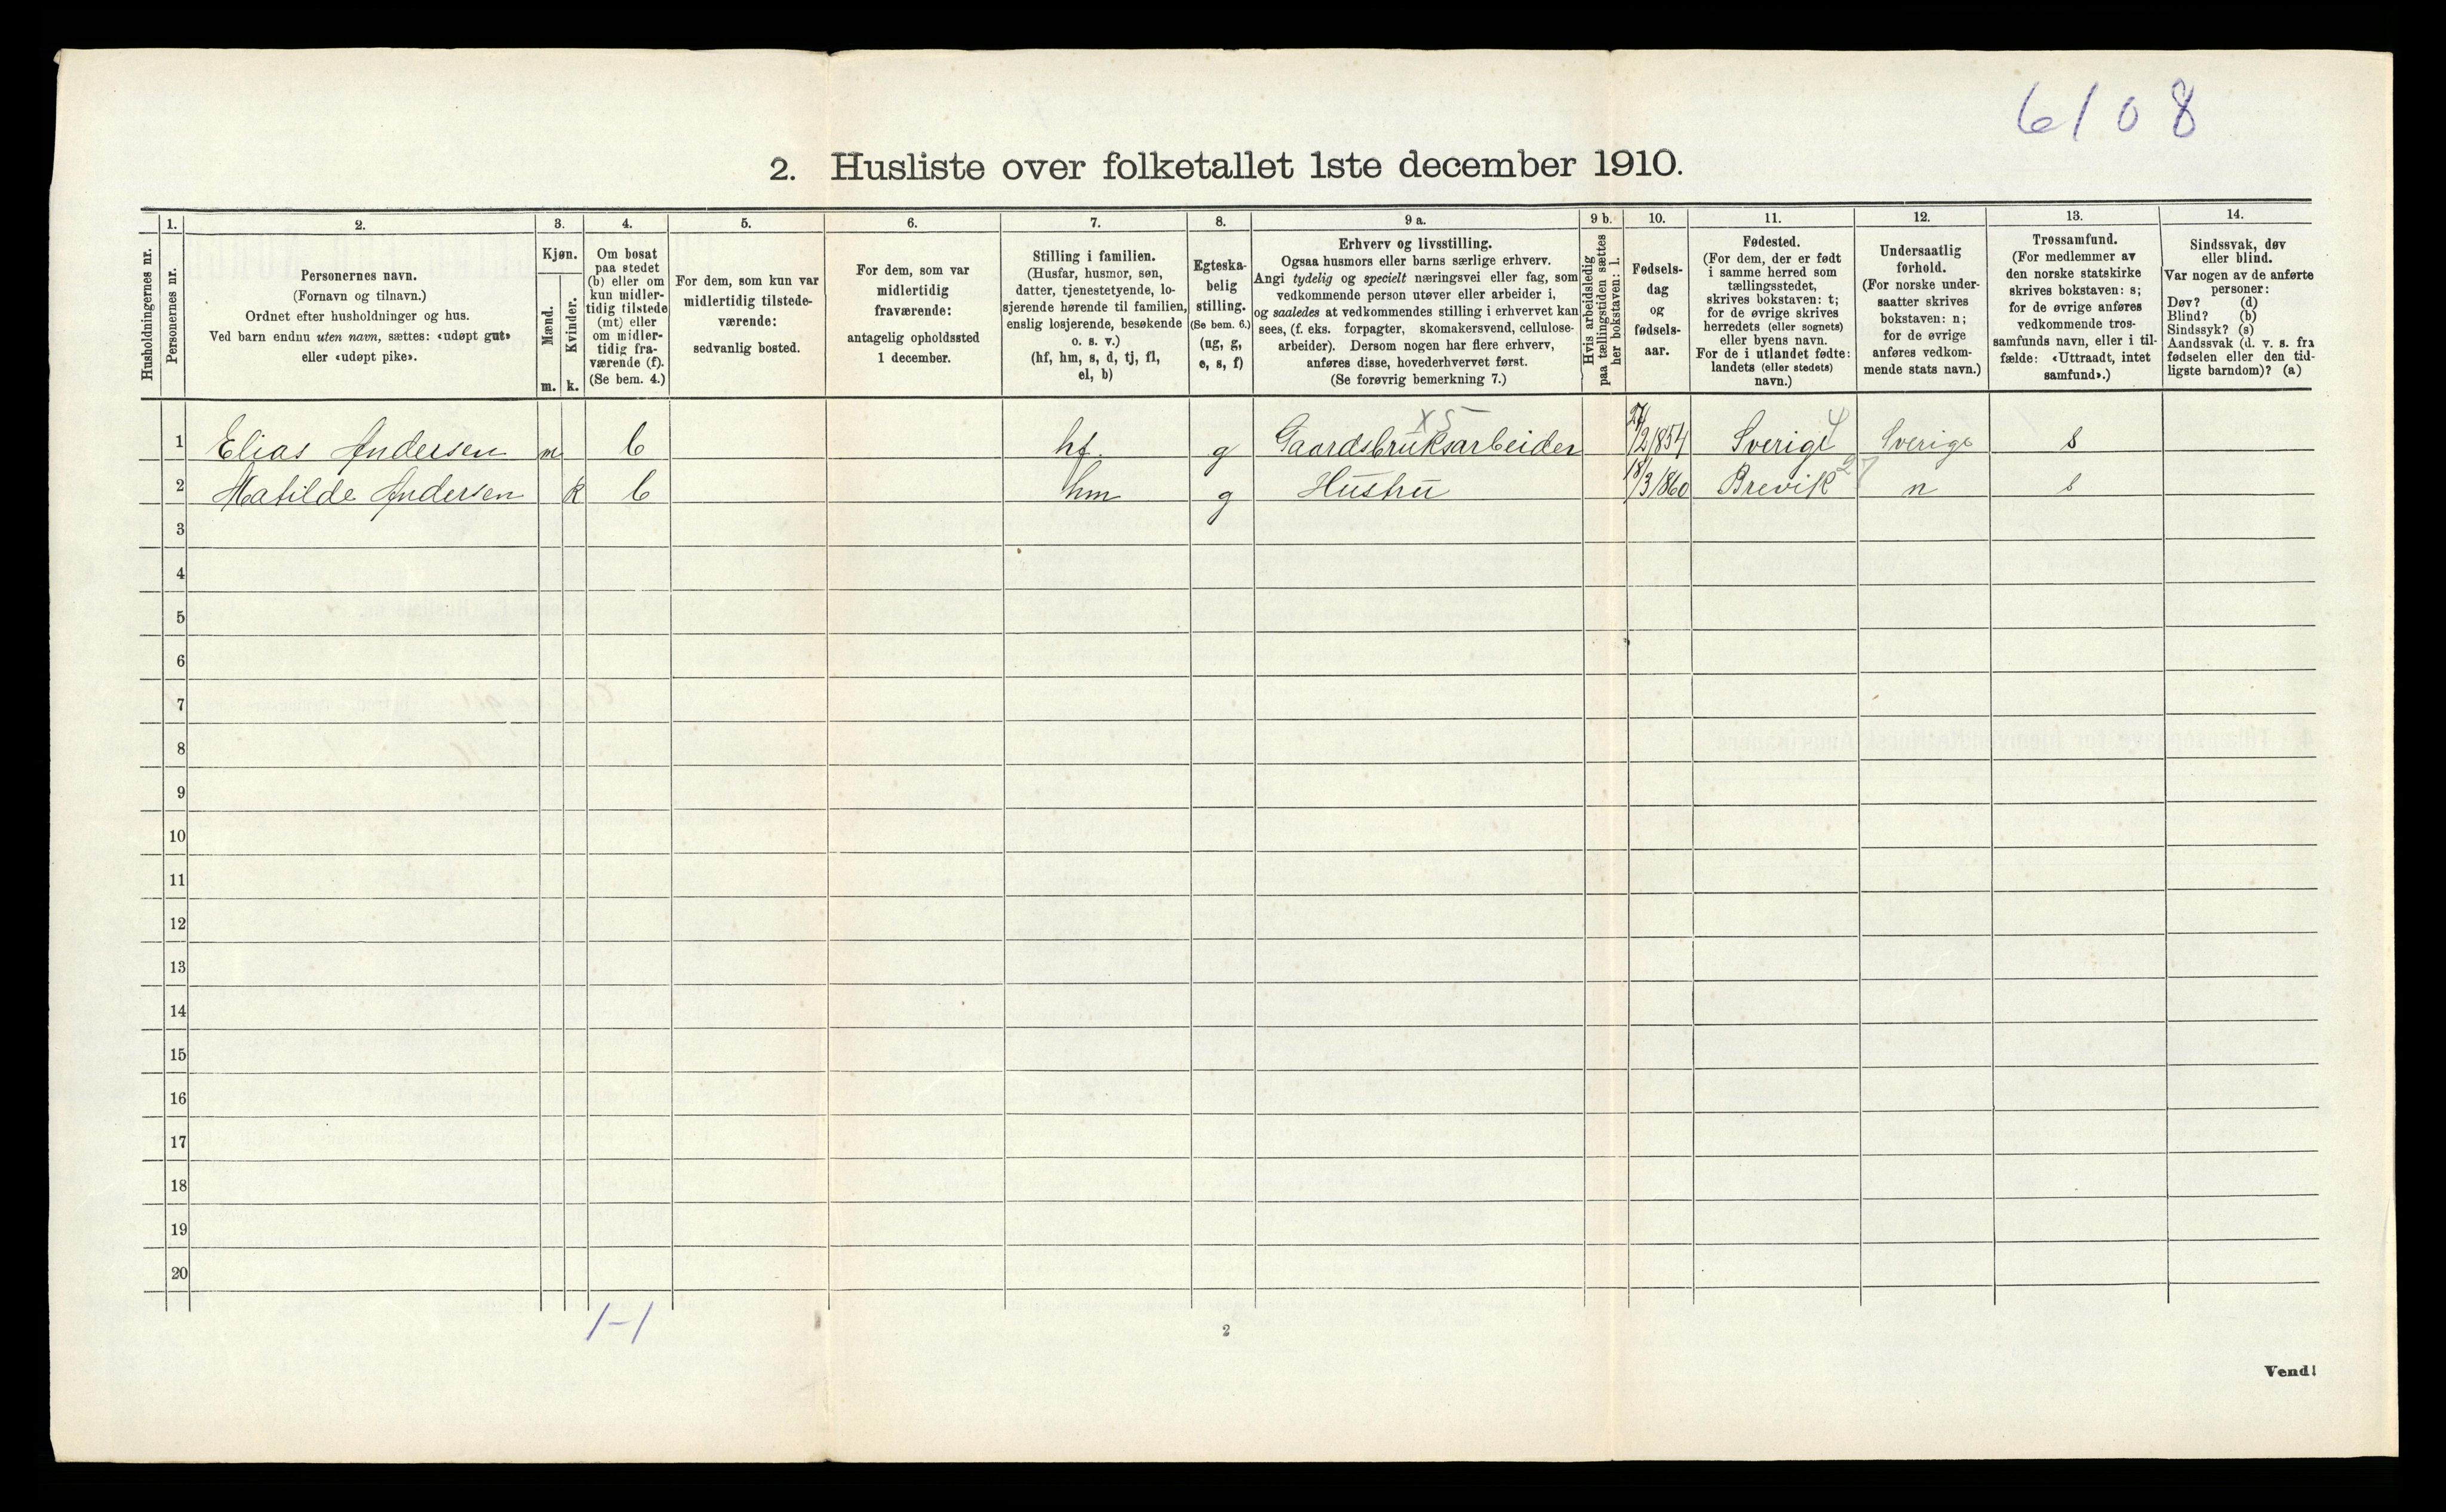 6108
2. Husliste over folketallet 1ste december 1910.
Husholdningernes nr.
1.
Personernes nr.
2.
Personernes navn.
(Fornavn og tilnavn.)
Ordnet efter husholdninger og hus.
Ved barn endnu uten navn, sættes: «udøpt gut»
eller «udøpt pike».
3.
Kjøn.
Mænd.
m.
Kvinder.
k.
4.
Om bosat
paa stedet
(b) eller om
kun midler-
tidig tilstede
(mt) eller
om midler-
tidig fra-
værende (f).
(Se bem. 4.)
5.
For dem, som kun var
midlertidig tilstede-
værende:
sedvanlig bosted.
6.
For dem, som var
midlertidig
fraværende:
antagelig opholdssted
1 december.
7.
Stilling i familien.
(Husfar, husmor, søn,
datter, tjenestetyende, lo-
sjerende hørende til familien,
enslig losjerende, besøkende
o. s. v.)
(hf, hm, s, d, tj, fl,
el, b)
8.
Egteska-
belig
stilling.
(Se bem. 6.)
(ug, g,
e, s, f)
9 a.
Erhverv og livsstilling.
Ogsaa husmors eller barns særlige erhverv.
Angi tydelig og specielt næringsvei eller fag, som
vedkommende person utøver eller arbeider i,
og saaledes at vedkommendes stilling i erhvervet kan
sees, (f. eks. forpagter, skomakersvend, cellulose-
arbeider). Dersom nogen har flere erhverv,
anføres disse, hovederhvervet først.
(Se forøvrig bemerkning 7.)
9 b.
Hvis arbeidsledig
paa tællingstiden sættes
her bokstaven: l.
10.
Fødsels-
dag
og
fødsels-
aar.
11.
Fødested.
(For dem, der er født
i samme herred som
tællingsstedet,
skrives bokstaven: t;
for de øvrige skrives
herredets (eller sognets)
eller byens navn.
For de i utlandet fødte:
landets (eller stedets)
navn.)
12.
Undersaatlig
forhold.
(For norske under-
saatter skrives
bokstaven: n;
for de øvrige
anføres vedkom-
mende stats navn.)
13.
Trossamfund.
(For medlemmer av
den norske statskirke
skrives bokstaven: s;
for de øvrige anføres
vedkommende tros-
samfunds navn, eller i til-
fælde: «Uttraadt, intet
samfund».)
14.
Sindssvak, døv
eller blind.
Var nogen av de anførte
personer:
Døv? (d)
Blind? (b)
Sindssyk? (s)
Aandssvak (d. v. s. fra
fødselen eller den tid-
ligste barndom)? (a)
X5
1 Elias Andersen m b hf. g Gaardsbruksarbeider 27/2 1854 Sverige 4 Sverige s
2 Matilde Andersen k b hm g Hustru 18/3 1860 Brevik 27 n s
3
4
5
6
7
8
9
10
11
12
13
14
15
16
17
18
19
20
1-1
2
Vend!